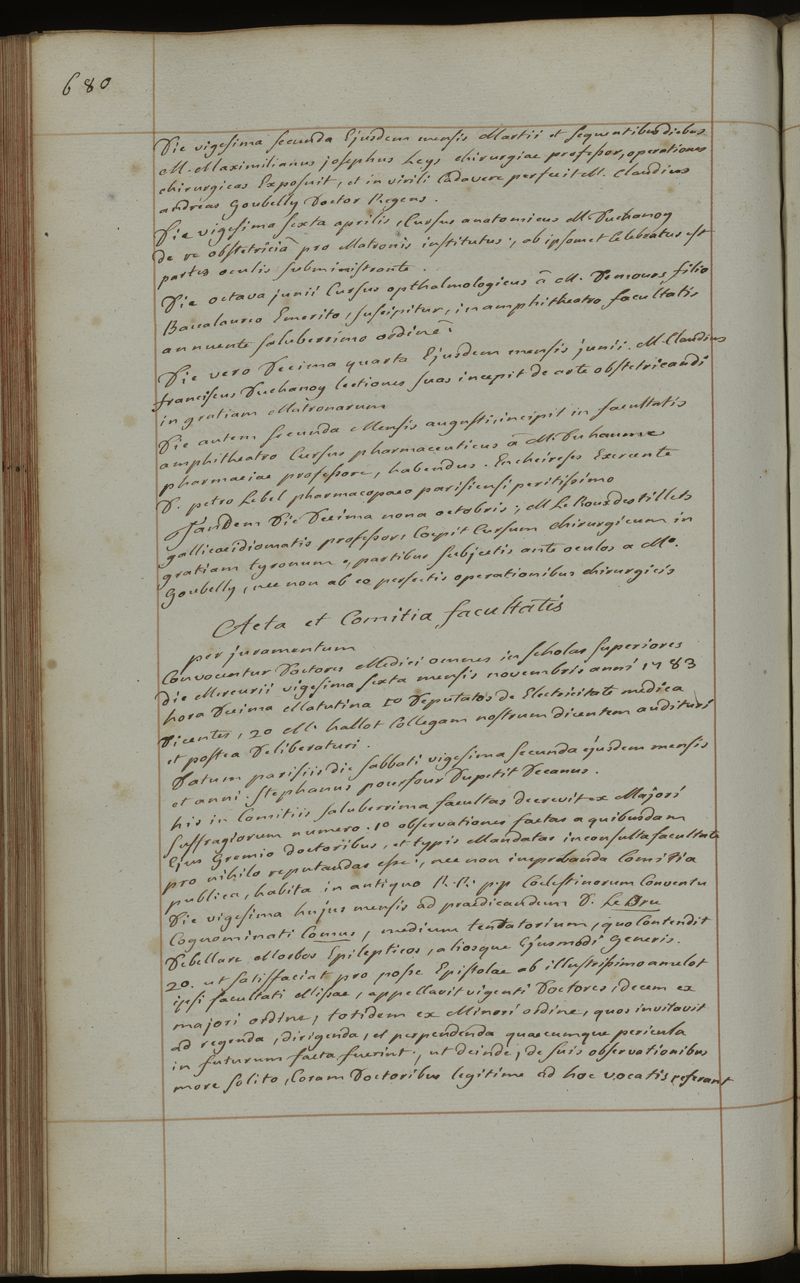 680
Die vigesima secunda Ejusdem mensis Martii et sequentibus diebus
M. Maximilianus josephus Leys chirurgiae professor, operationes
chirurgicas Exposuit, et in virili Cadavere perfecit M. Claudius
andreas Goubelly Doctor Regens.
Die vigesima sexta aprilis, Cursus anatomicus M Duchanoy
de re obstetriciâ pro Matronis institutus, ab ipsomet Celebratus est
partes oculis subministrante.
Die octava junii Cursus opthalmologicus â M. Demours filio
Baccalaureo Emerito, suscipitur, in amphitheatro facultatis
annuente saluberrimo ordine.
Die vero Decima quarta Ejusdem mensis junii. M. Claudius
franciscus Duchanoy lectiones suas incepit de arte obstetricandi
in gratiam Matronarum
Die autem secunda Mensis augusti, incipit in facultatis
amphitheatro Cursus pharmaceuticus â M. Duhaume
pharmaciae professore, habendus. Encheireses Exercente
D. petro Lebel pharmacopaeo parisiensi peritissimo
Tandem Die Decima nona octobris; M Le Roux des tillets
gallicae idiomatis professor, Coepit Cursum chirurgicum in
gratiam tyronum, partibus subjectis ante oculos a Mo.
Goubelly, nec non ab eo perfectis operationibus chirurgicis
Acta et Comitia facultatis
per juramentum
Convocentur Doctores Medici omnes in scholas superiores
die Mercurii vigesima sexta mensis novembris anni 1783
hora Decima Matutina 1o Deputatos de Electricitate medica
Dicentes, 2o M. hallot Collegam nostrum dicentem audituri
et postea Deliberaturi.
Datum parisiis die sabbati vigesima secunda ejusdem mensis
et anni. Stephanus pourfour Dupetit Decanus.
his in Comitiis saluberrima facultas decrevit ex Majori
suffragiorum numero. 1o observationes factas a quibusdam
Ejus Gremio doctoribus, et typis Mandatas inconsulta facultate
pro nihilo reputandas esse, nec non improbanda Comitia
publica, habita in antiquo R. R. p.p Coelestinorum Conventu
Die vigesima hujus mensis ad praedicandum D. Le Dru
Cognominati Comus, medium tentatorium, quo Contendit
Debellare Morbos Epilepticos, aliosque Ejusmodi Generis.
2o. ut satisfaciat pro posse Epistolae ab illustrissimo amelot
ipsi facultati Missae, appellavit viginti Doctores, decem ex
majori ordine, totidem ex Minori ordine, quos invitavit
ad regenda, dirigenda, et perpendenda quaecumque pericula
in futurum facta fuerint, ut deinde, de suis observationibus
more solito, Coram Doctoribus legitime ad hoc vocatis referant